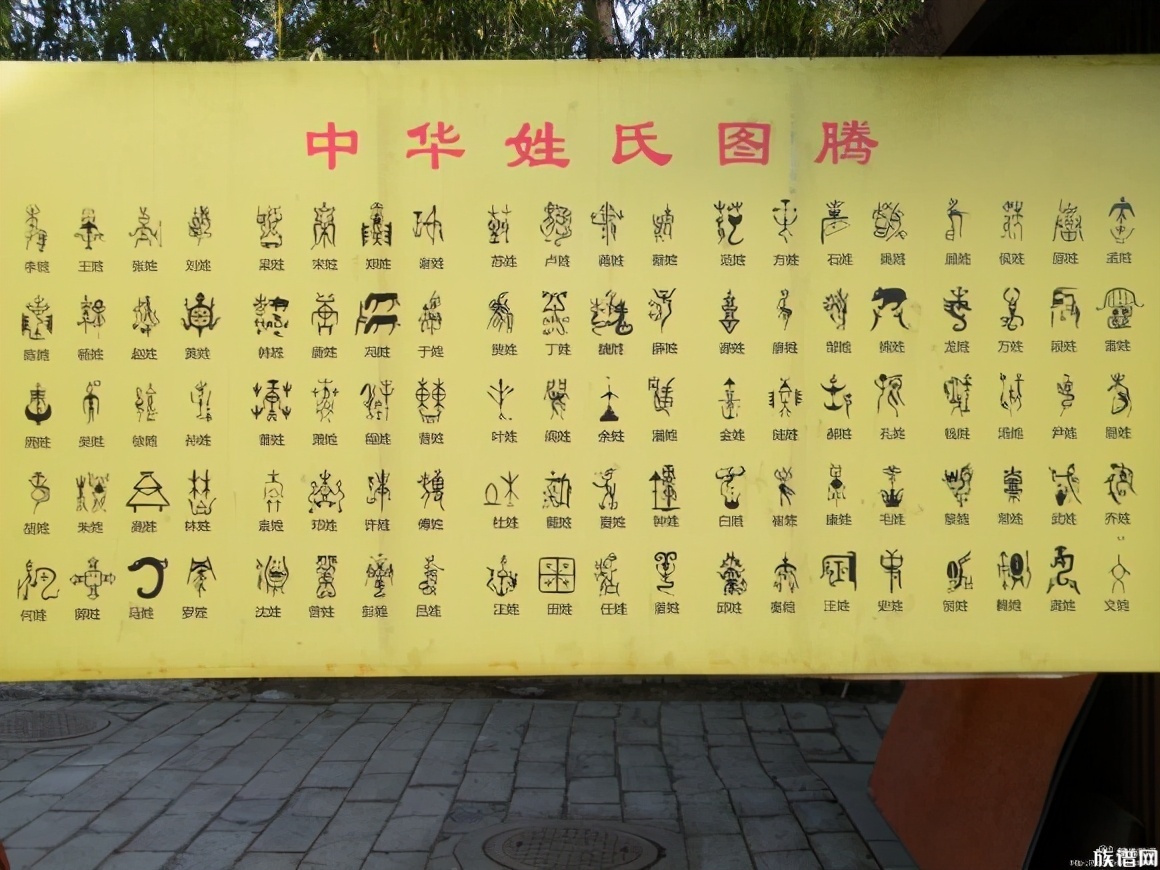 中华姓氏图腾
李姓 王姓 张姓 刘姓 梁姓 宋姓 郑姓 谢姓 苏姓 卢姓 蒋姓 范姓 方姓 石姓 孟姓
赵姓 黄姓 韩姓 唐姓 冯姓 于姓 贾姓 丁姓 魏姓 薛姓 邹姓 熊姓 龙姓 万姓
周姓 吴姓 徐姓 孙姓 董姓 萧姓 程姓 曹姓 叶姓 阎姓 余姓 潘姓 金姓 陆姓 郝姓 孔姓 尹姓
胡姓 朱姓 高姓 林姓 袁姓 邓姓 许姓 傅姓 杜姓 戴姓 夏姓 钟姓 白姓 崔姓 康姓 毛姓 黎姓 武姓 齐姓
何姓 郭姓 马姓 罗姓 沈姓 曾姓 彭姓 吕姓 汪姓 田姓 任姓 邱姓 秦姓 史姓 文姓
族谱网